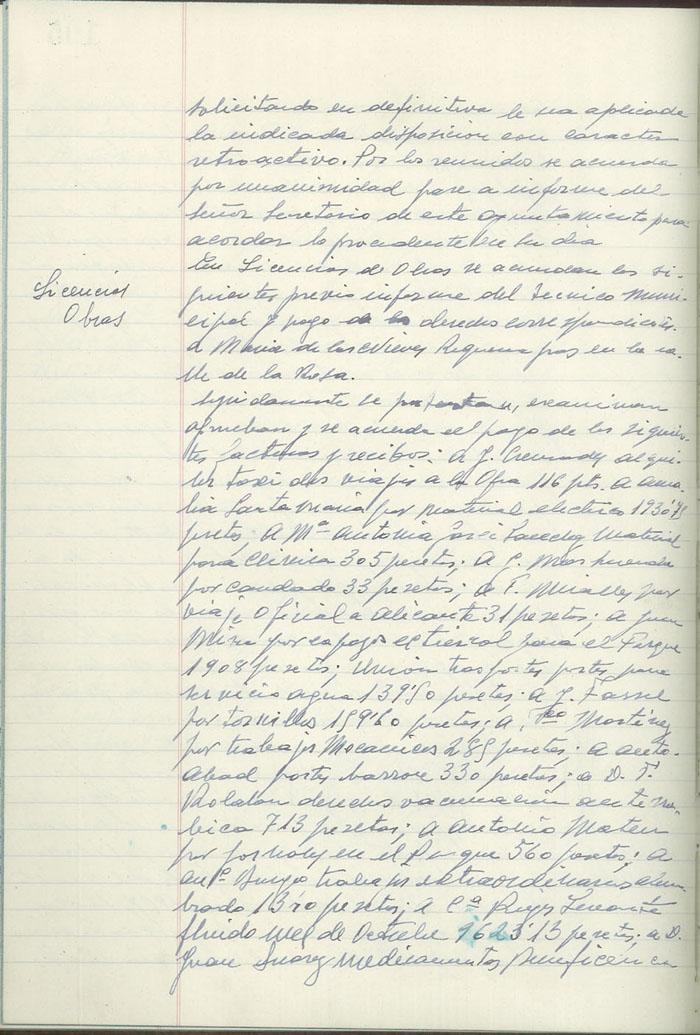 solicitando en definitiva le sea aplicada
la indicada disposicion con caracter
retroactivo. Por los reunidos se acuerda
por unanimidad pase a informe del
señor Secretario de este Ayuntamiento para
acordar lo procedente en su dia
Licencias
Obras
En Licencias de Obras se acuerdan las si-
guientes previo informe del Tecnico Muni-
cipal y pago de los derechos correspondientes.
a Maria de las Nieves Requena en la ca-
lle de la Rosa.
Seguidamente se presentan, examinan
aprueban y se acuerda el pago de las siguien-
tes facturas y recibos: a J. alqui-
ler taxi dos viajes a la 116 pts. a Ama-
lia Santa Maria por material electrico 1930'75
pesetas; a Mª Antonia material
para 305 pesetas; a J. Mas
por candado 33 pesetas; a F. Miralles por
viaje Oficial a Alicante 31 pesetas; a Juan
Mira por capazos estiercol para el Parque
1908 pesetas; Union trasportes portes para
servicio agua 139'50 pesetas; a J.
por tornillos 159'60 pesetas; a Fco Martinez
por trabajos Mecanicos 285 pesetas; a
Abad portes 330 pesetas; a D. F.
derechos vacunación antirra-
bica 713 pesetas; a Antonio Mateu
por jornales en el Parque 560 pesetas; a
trabajos extraordinarios alum-
brado 1370 pesetas; a Cª Riegos Levante
fluido mes de Octubre 9623'13 pesetas; a D.
Juan Suarez medicamentos Beneficencia